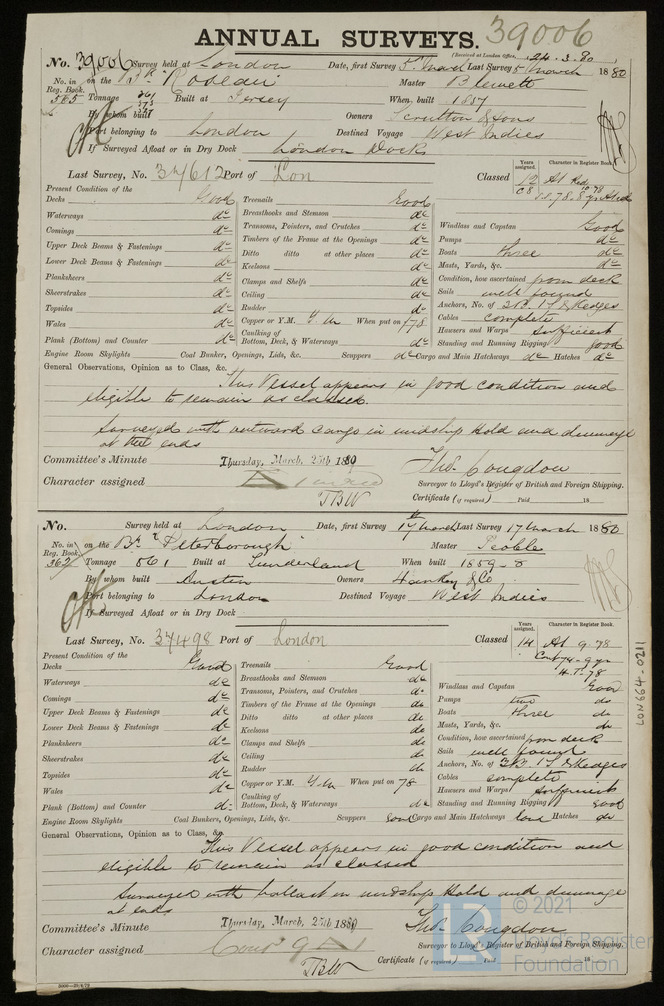 ANNUAL SURVEYS. 39006
(Received at London Office, 24.3.80
No. 39006 Survey held at London Date, first Survey 5th March Last Survey 5 March 1880
No. in Reg. Book. 585 on the Master Blewett
Tonnage Built at Jersey When built 1857
By whom built Owners Scrutton & Sons
Port belonging to London Destined Voyage West Indies
If Surveyed Afloat or in Dry Dock London Docks
Last Survey, No. 37612 Port of Lon Classed
Years assigned. 12 Character in Register Book. A1 Red
Present Condition of the
Decks Good
Waterways do
Comings do
Upper Deck Beams & Fastenings do
Lower Deck Beams & Fastenings do
Planksheers do
Sheerstrakes do
Topsides do
Wales do
Plank (Bottom) and Counter do
Treenails Good
Breasthooks and Stemson do
Transoms, Pointers, and Crutches do
Timbers of the Frame at the Openings do
Ditto ditto at other places do
Keelsons do
Clamps and Shelfs do
Ceiling do
Rudder do
Copper or Y.M. Y.M When put on /78
Caulking of Bottom, Deck, & Waterways do
Windlass and Capstan Good
Pumps do
Boats three do
Masts, Yards, &c. do
Condition, how ascertained from deck
Sails well found
Anchors, No. of 3B. 1S & Kedges
Cables complete
Hawsers and Warps sufficient
Standing and Running Rigging good
Engine Room Skylights Coal Bunker, Openings, Lids, &c. Scuppers do Cargo and Main Hatchways do Hatches do
General Observations, Opinion as to Class, &c.
This Vessel appears in good condition and
eligible to remain as classed.
Surveyed with outward Cargo in midship Hold and dunnage
at the ends
Committee's Minute Thursday, March, 25th 1880 Thos. Congdon
Character assigned Surveyor to Lloyd's Register of British and Foreign Shipping.
TBW Certificate (if required) Paid 18
No. Survey held at London Date, first Survey 17th March Last Survey 17 March 1880
No. in Reg. Book. 362 on the Bk "Peterborough" Master Peoble
Tonnage 561 Built at Sunderland When built 1859-8
By whom built Austin Owners Hankey & Co
Port belonging to London Destined Voyage West Indies
If Surveyed Afloat or in Dry Dock
Last Survey, No. 37498 Port of London Classed
Years assigned. 14 Character in Register Book. A1 9.78
Present Condition of the
Decks Good
Waterways do
Comings do
Upper Deck Beams & Fastenings do
Lower Deck Beams & Fastenings do
Planksheers do
Sheerstrakes do
Topsides do
Wales do
Plank (Bottom) and Counter do
Treenails Good
Breasthooks and Stemson do
Transoms, Pointers, and Crutches do
Timbers of the Frame at the Openings do
Ditto ditto at other places do
Keelsons do
Clamps and Shelfs do
Ceiling do
Rudder do
Copper or Y.M. Y.M When put on 78
Caulking of Bottom, Deck, & Waterways do
Windlass and Capstan Good
Pumps two do
Boats three do
Masts, Yards, &c. do
Condition, how ascertained from deck
Sails well found
Anchors, No. of 3B. 1S & Kedges
Cables complete
Hawsers and Warps sufficient
Standing and Running Rigging good
Engine Room Skylights Coal Bunkers, Openings, Lids, &c. Scuppers Good Cargo and Main Hatchways Good Hatches do
General Observations, Opinion as to Class, &c.
This Vessel appears in good condition and
eligible to remain as classed
Surveyed with ballast in midship Hold and dunnage
at ends
Committee's Minute Thursday, March, 25th 1880 Thos. Congdon
Character assigned Surveyor to Lloyd's Register of British and Foreign Shipping.
TBW Certificate (if required) Paid 18
LON664-0211
© 2021
Lloyd's Register
Foundation